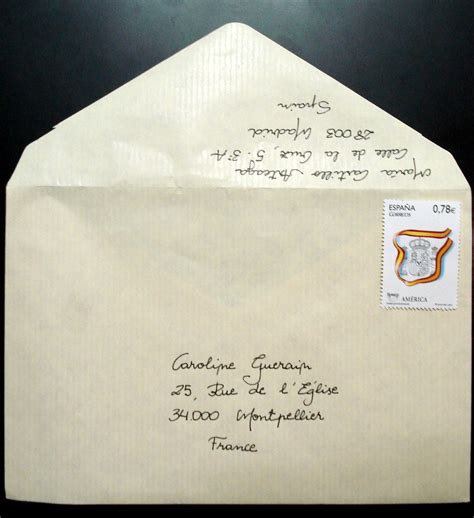 Maria Castillo Arteaga
Calle de la Cruz, 5 - 3ºA
28003 Madrid
Spain
ESPAÑA 0,78€
CORREOS
AMÉRICA
Caroline Guerain
25, Rue de l'Église
34.000 Montpellier
France